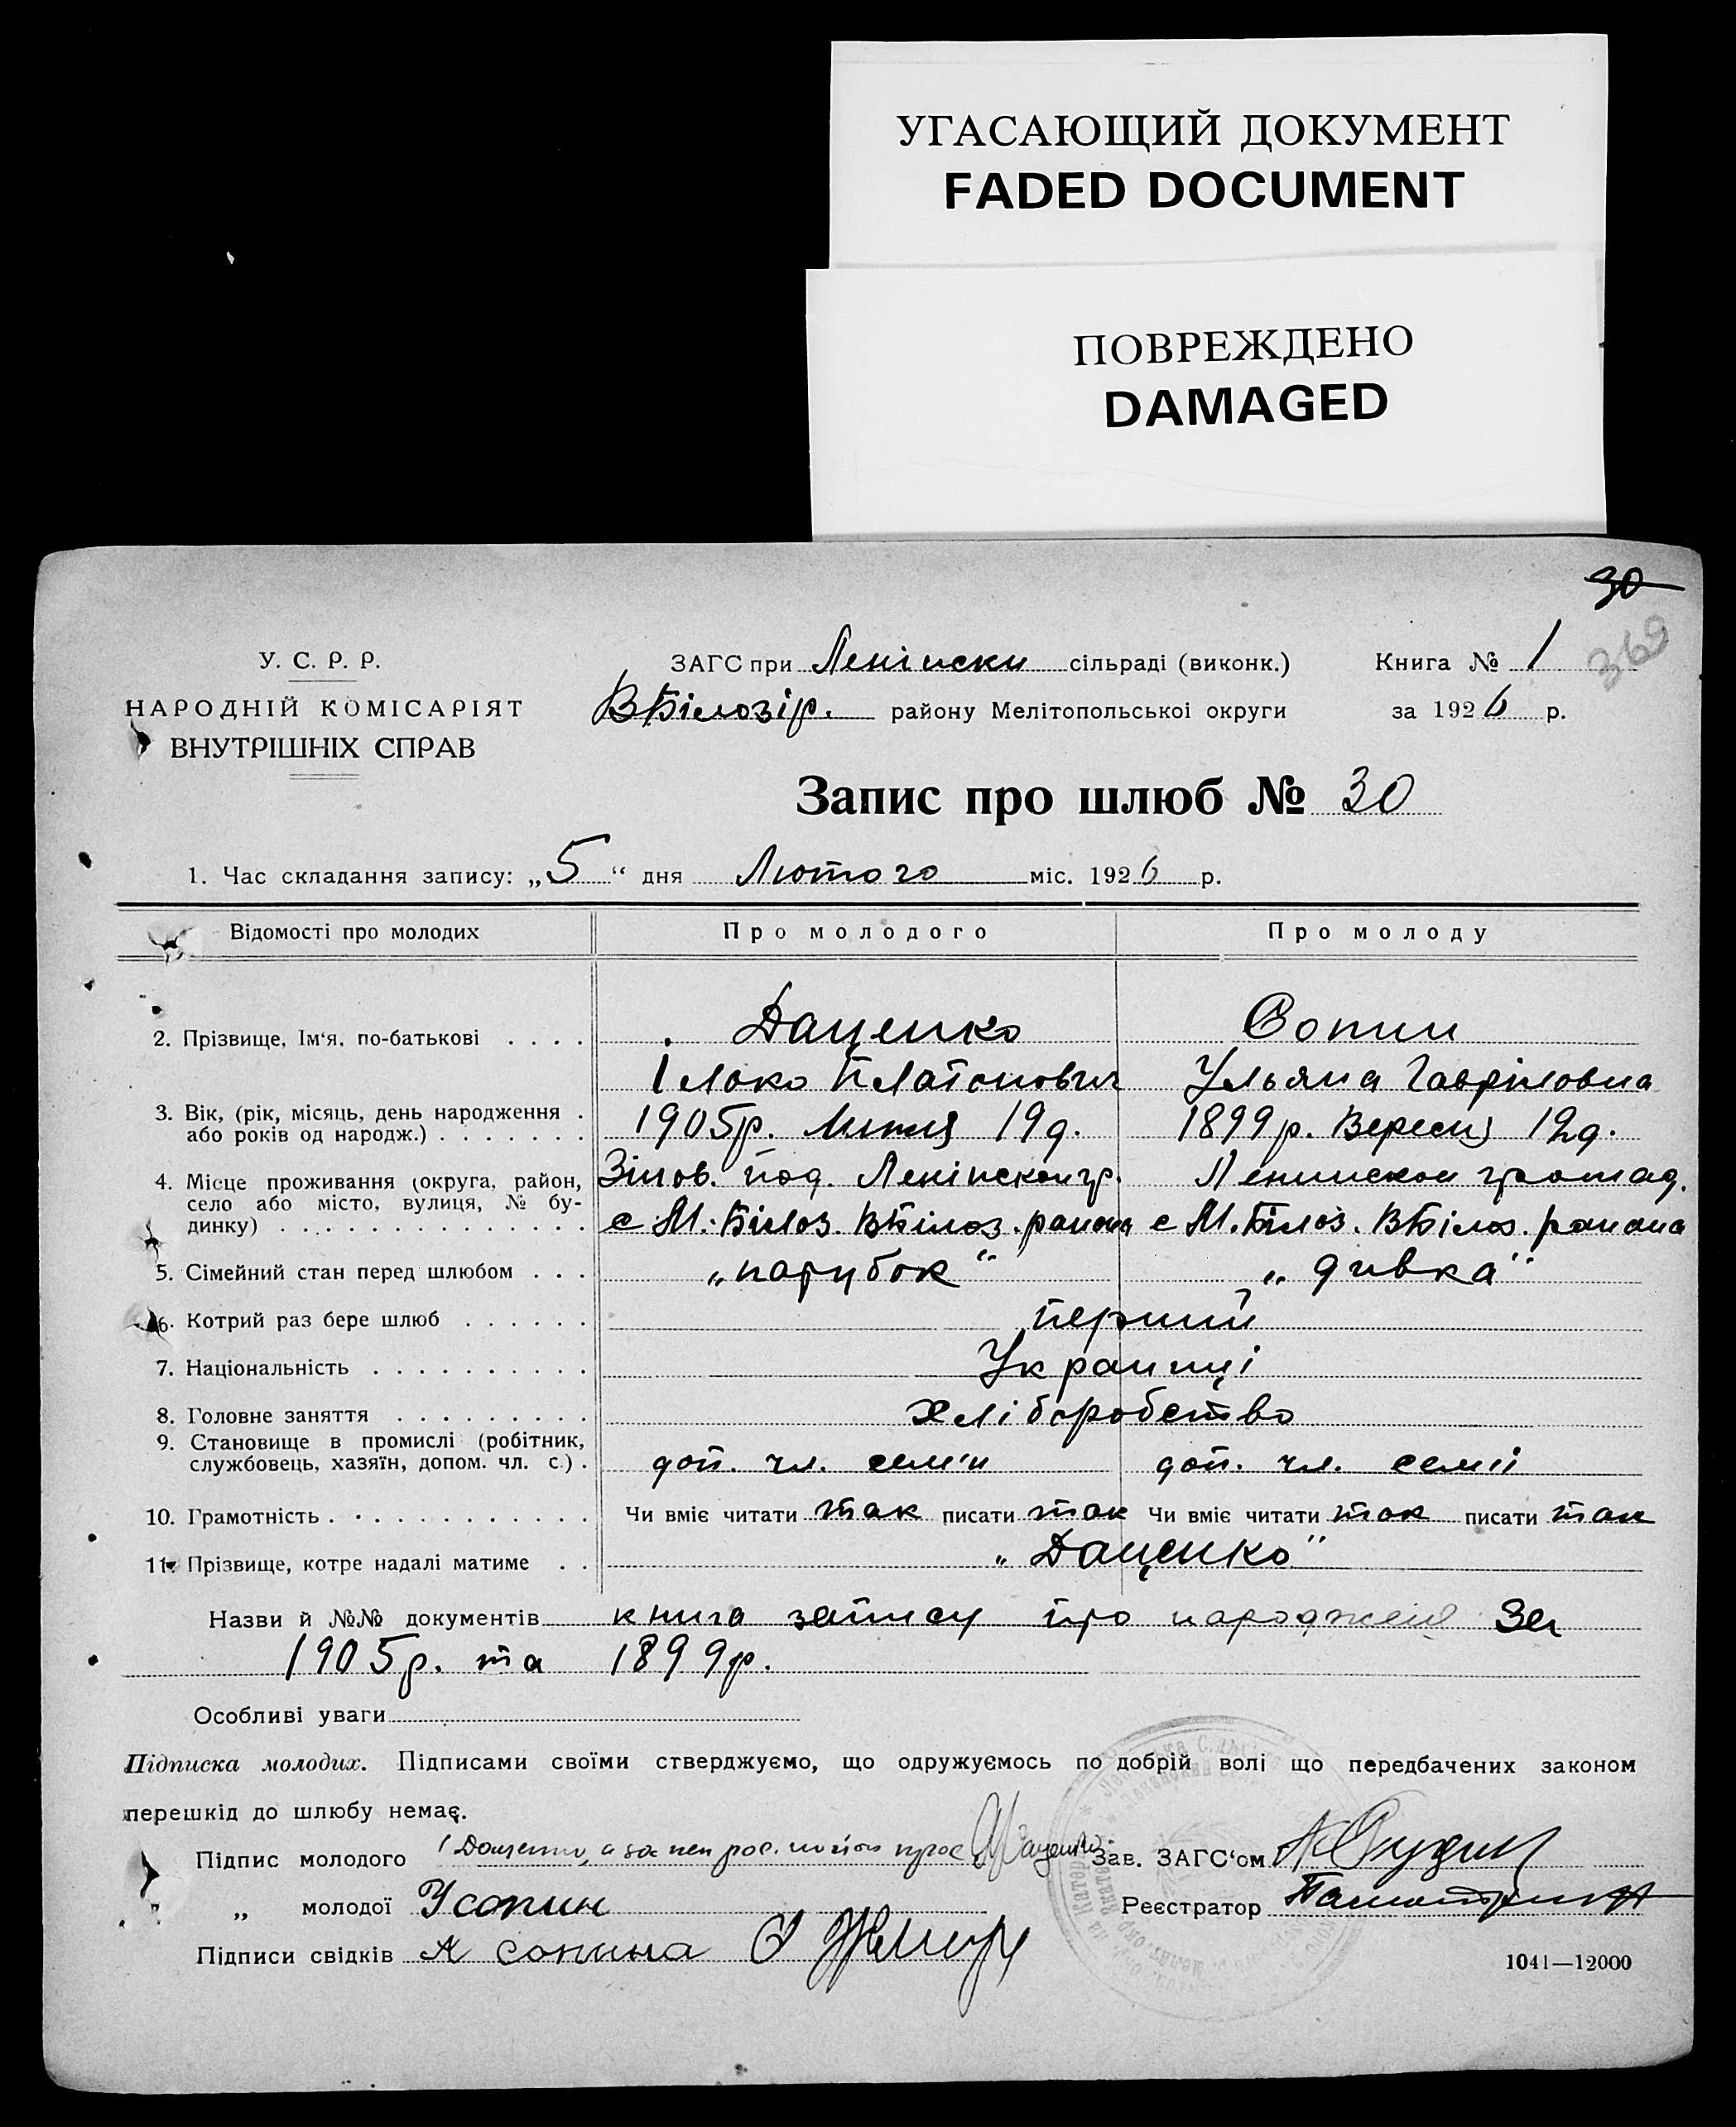 УГАСАЮЩИЙ ДОКУМЕНТ
FADED DOCUMENT
ПОВРЕЖДЕНО
DAMAGED
30
369
У. С. Р. Р.
НАРОДНІЙ КОМІСАРІЯТ
ВНУТРІШНІХ СПРАВ
ЗАГС при Ленінски сільраді (виконк.)
ВБілозір. району Мелітопольської округи
Книга № 1
за 1926 р.
Запис про шлюб № 30
1. Час складання запису: „5“ дня Лютого міс. 1926 р.
Відомості про молодих Про молодого Про молоду
2. Прізвище, Ім‘я, по-батькові . . . . Даценко Сопин
Ілько Платонович Ульяна Гавриловна
3. Вік, (рік, місяць, день народження . 1905р. Липня 19д. 1899р. Вересня 12д.
або років од народж.) . . . . . . .
4. Місце проживання (округа, район, Ленінскои гр. Ленинскои громад.
село або місто, вулиця, № бу- с М. Білоз. ВБілоз. раиона с М. Білоз. ВБілоз. раиона
динку) . . . . . . . . . . . . . .
5. Сімейний стан перед шлюбом . . . „парубок“ „дивка“
6. Котрий раз бере шлюб . . . . . . перший
7. Національність . . . . . . . . . . Украинці
8. Головне заняття . . . . . . . . . хліборобство
9. Становище в промислі (робітник,
службовець, хазяїн, допом. чл. с.) . доп. чл. семїи доп. чл. семії
10. Грамотність . . . . . . . . . . . . Чи вміє читати так писати так Чи вміє читати так писати так
11. Прізвище, котре надалі матиме . . „Даценко“
Назви й №№ документів книга запису про народженя за
1905р. та 1899р.
Особливі уваги
Підписка молодих. Підписами своїми стверджуємо, що одружуємось по добрій волі що передбачених законом
перешкід до шлюбу немає.
Підпис молодого І Даценко, а за Даценко Зав. ЗАГС‘ом
„ молодої Усопин Реєстратор
Підписи свідків А Сопина
1041—12000